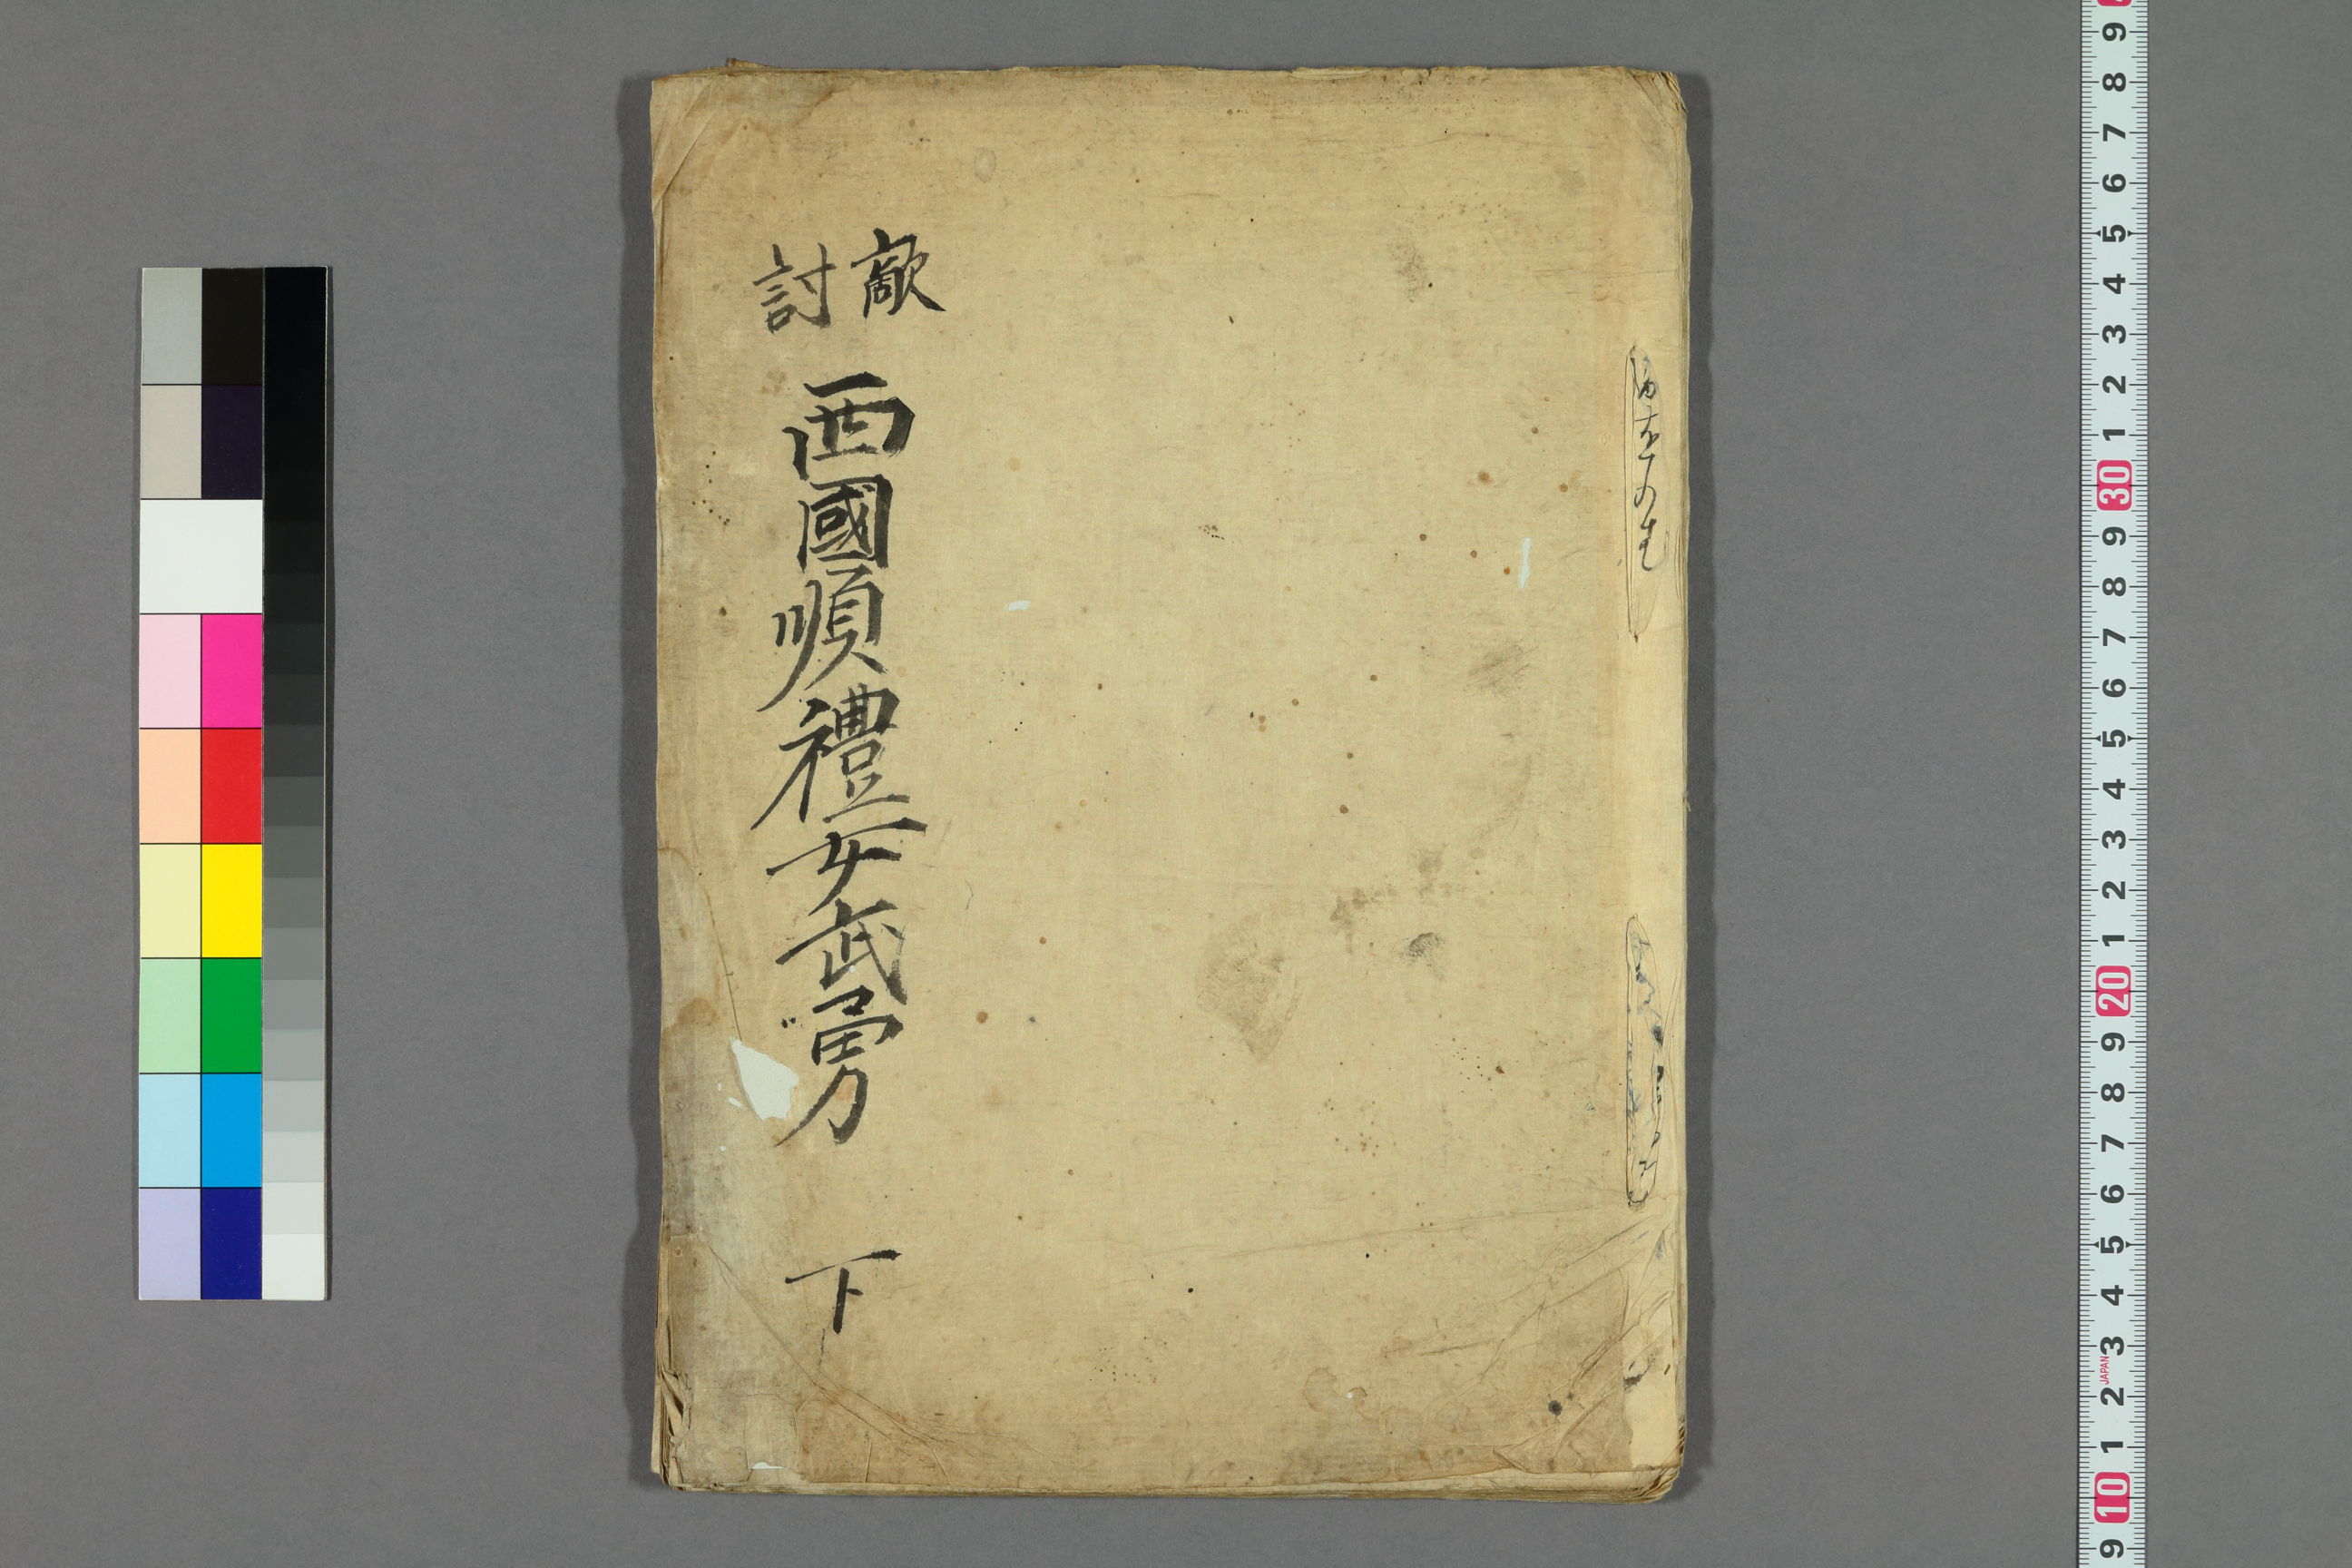 敵討
西國順禮女武勇 下
9
8
7
6
5
4
3
2
1
30
9
8
7
6
5
4
3
2
1
20
9
8
7
6
5
4
3
JAPAN
2
1
10
9